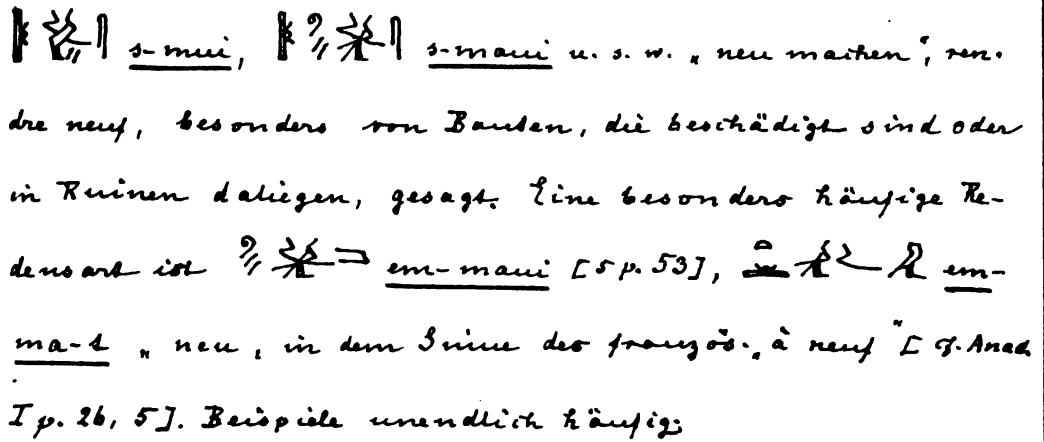 s-mui, s-maui u. s. w. „neu machen“, ren-
dre neuf, besonders von Bauten, die beschädigt sind oder
in Ruinen daliegen, gesagt. Eine besonders häufige Re-
densart ist em-maui [5 p. 53], em-
ma-t „neu, in dem Sinne des französ. „à neuf“ [cf. Anas
I p. 26, 5]. Beispiele unendlich häufig;